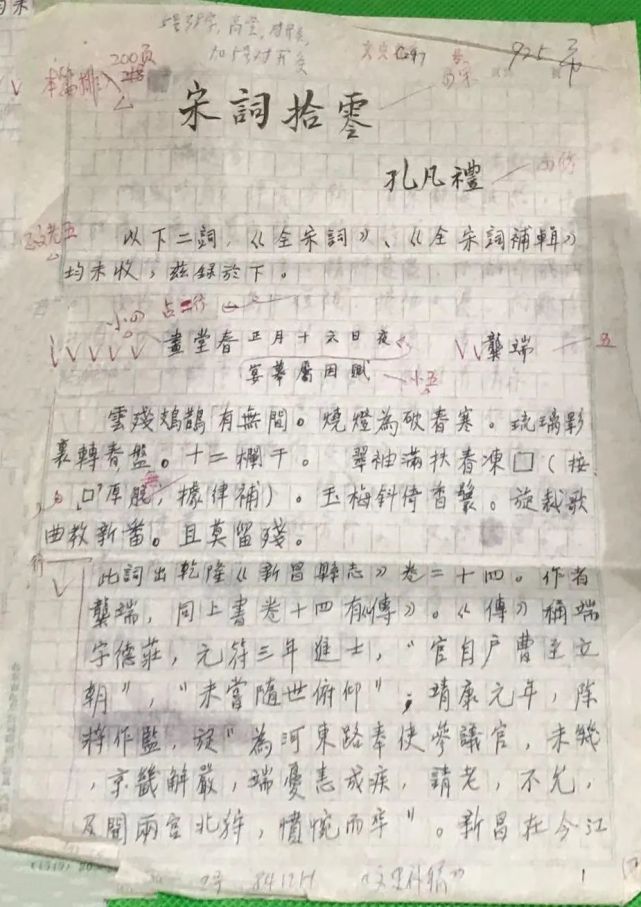 925
200页
宋詞拾零
孔凡禮
以下二詞，《全宋詞》、《全宋詞補輯》
均未收，兹録於下。
小四
畫堂春 正月十六日夜 龔端 五
宴幕屬因賦 小五
雲殘鳷鵲有無間。燒燈為破春寒。琉璃影
裏轉春盤。十二欄干。 翠袖滿扶春凍□（按
，□原脱，據律補）。玉梅斜倚香鬟。旋裁歌
曲教新番。且莫留殘。
此詞出乾隆《新昌縣志》卷二十四。作者
龔端，同上書卷十四有《傳》。《傳》稱端
字德莊，元符三年進士，“官自户曹至立
朝”，“未嘗隨世俯仰”；靖康元年，除
將作監，旋“為河東路奉使參議官，未幾
，京畿解嚴，端憂恚成疾，請老，不允，
及聞兩宫北狩，憤惋而卒”。新昌在今江
《文史
1